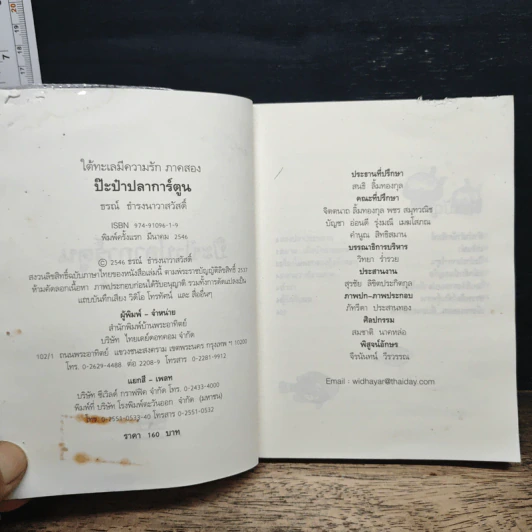 ใต้ทะเลมีความรัก ภาคสอง
ป๊ะป๋าปลาการ์ตูน
ธรณ์ ธำรงนาวาสวัสดิ์
ISBN 974-91096-1-9
พิมพ์ครั้งแรก มีนาคม 2546
© 2546 ธรณ์ ธำรงนาวาสวัสดิ์
สงวนลิขสิทธิ์ฉบับภาษาไทยของหนังสือเล่มนี้ ตามพระราชบัญญัติลิขสิทธิ์ 2537
ห้ามคัดลอกเนื้อหา ภาพประกอบก่อนได้รับอนุญาติ รวมทั้งการดัดแปลงเป็น
แถบบันทึกเสียง วิดีโอ โทรทัศน์ และ สื่ออื่นๆ
ผู้พิมพ์ - จำหน่าย
สำนักพิมพ์บ้านพระอาทิตย์
บริษัท ไทยเดย์ดอทคอม จำกัด
102/1 ถนนพระอาทิตย์ แขวงชนะสงคราม เขตพระนคร กรุงเทพ ฯ 10200
โทร. 0-2629-4488 ต่อ 2208-9 โทรสาร 0-2281-9912
แยกสี - เพลท
บริษัท ซีเวิลด์ กราฟฟิค จำกัด โทร. 0-2433-4000
พิมพ์ที่ บริษัท โรงพิมพ์ตะวันออก จำกัด (มหาชน)
โทร. 0-2551-0532-40 โทรสาร 0-2551-0532
ราคา 160 บาท
ประธานที่ปรึกษา
สนธิ ลิ้มทองกุล
คณะที่ปรึกษา
จิตตนาถ ลิ้มทองกุล พชร สมุทวณิช
บัญชา อ่อนดี รุ่งมณี เมฆโสภณ
คำนูณ สิทธิสมาน
บรรณาธิการบริหาร
วิทยา ร่ำรวย
ประสานงาน
สุรชัย ลิขิตประกิตกุล
ภาพปก-ภาพประกอบ
ภัทรีดา ประสานทอง
ศิลปกรรม
สมชาติ นาคหล่อ
พิสูจน์อักษร
จีรนันทน์ วีรวรรณ
Email : widhayar@thaiday.com